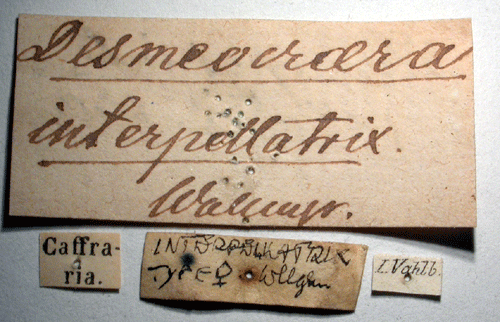 Desmeocræra
interpellatrix.
Wallengr.
Caffra-
ria.
INTERPELLATRIX
Type ♀ Wllgrn
J. Vahlb.